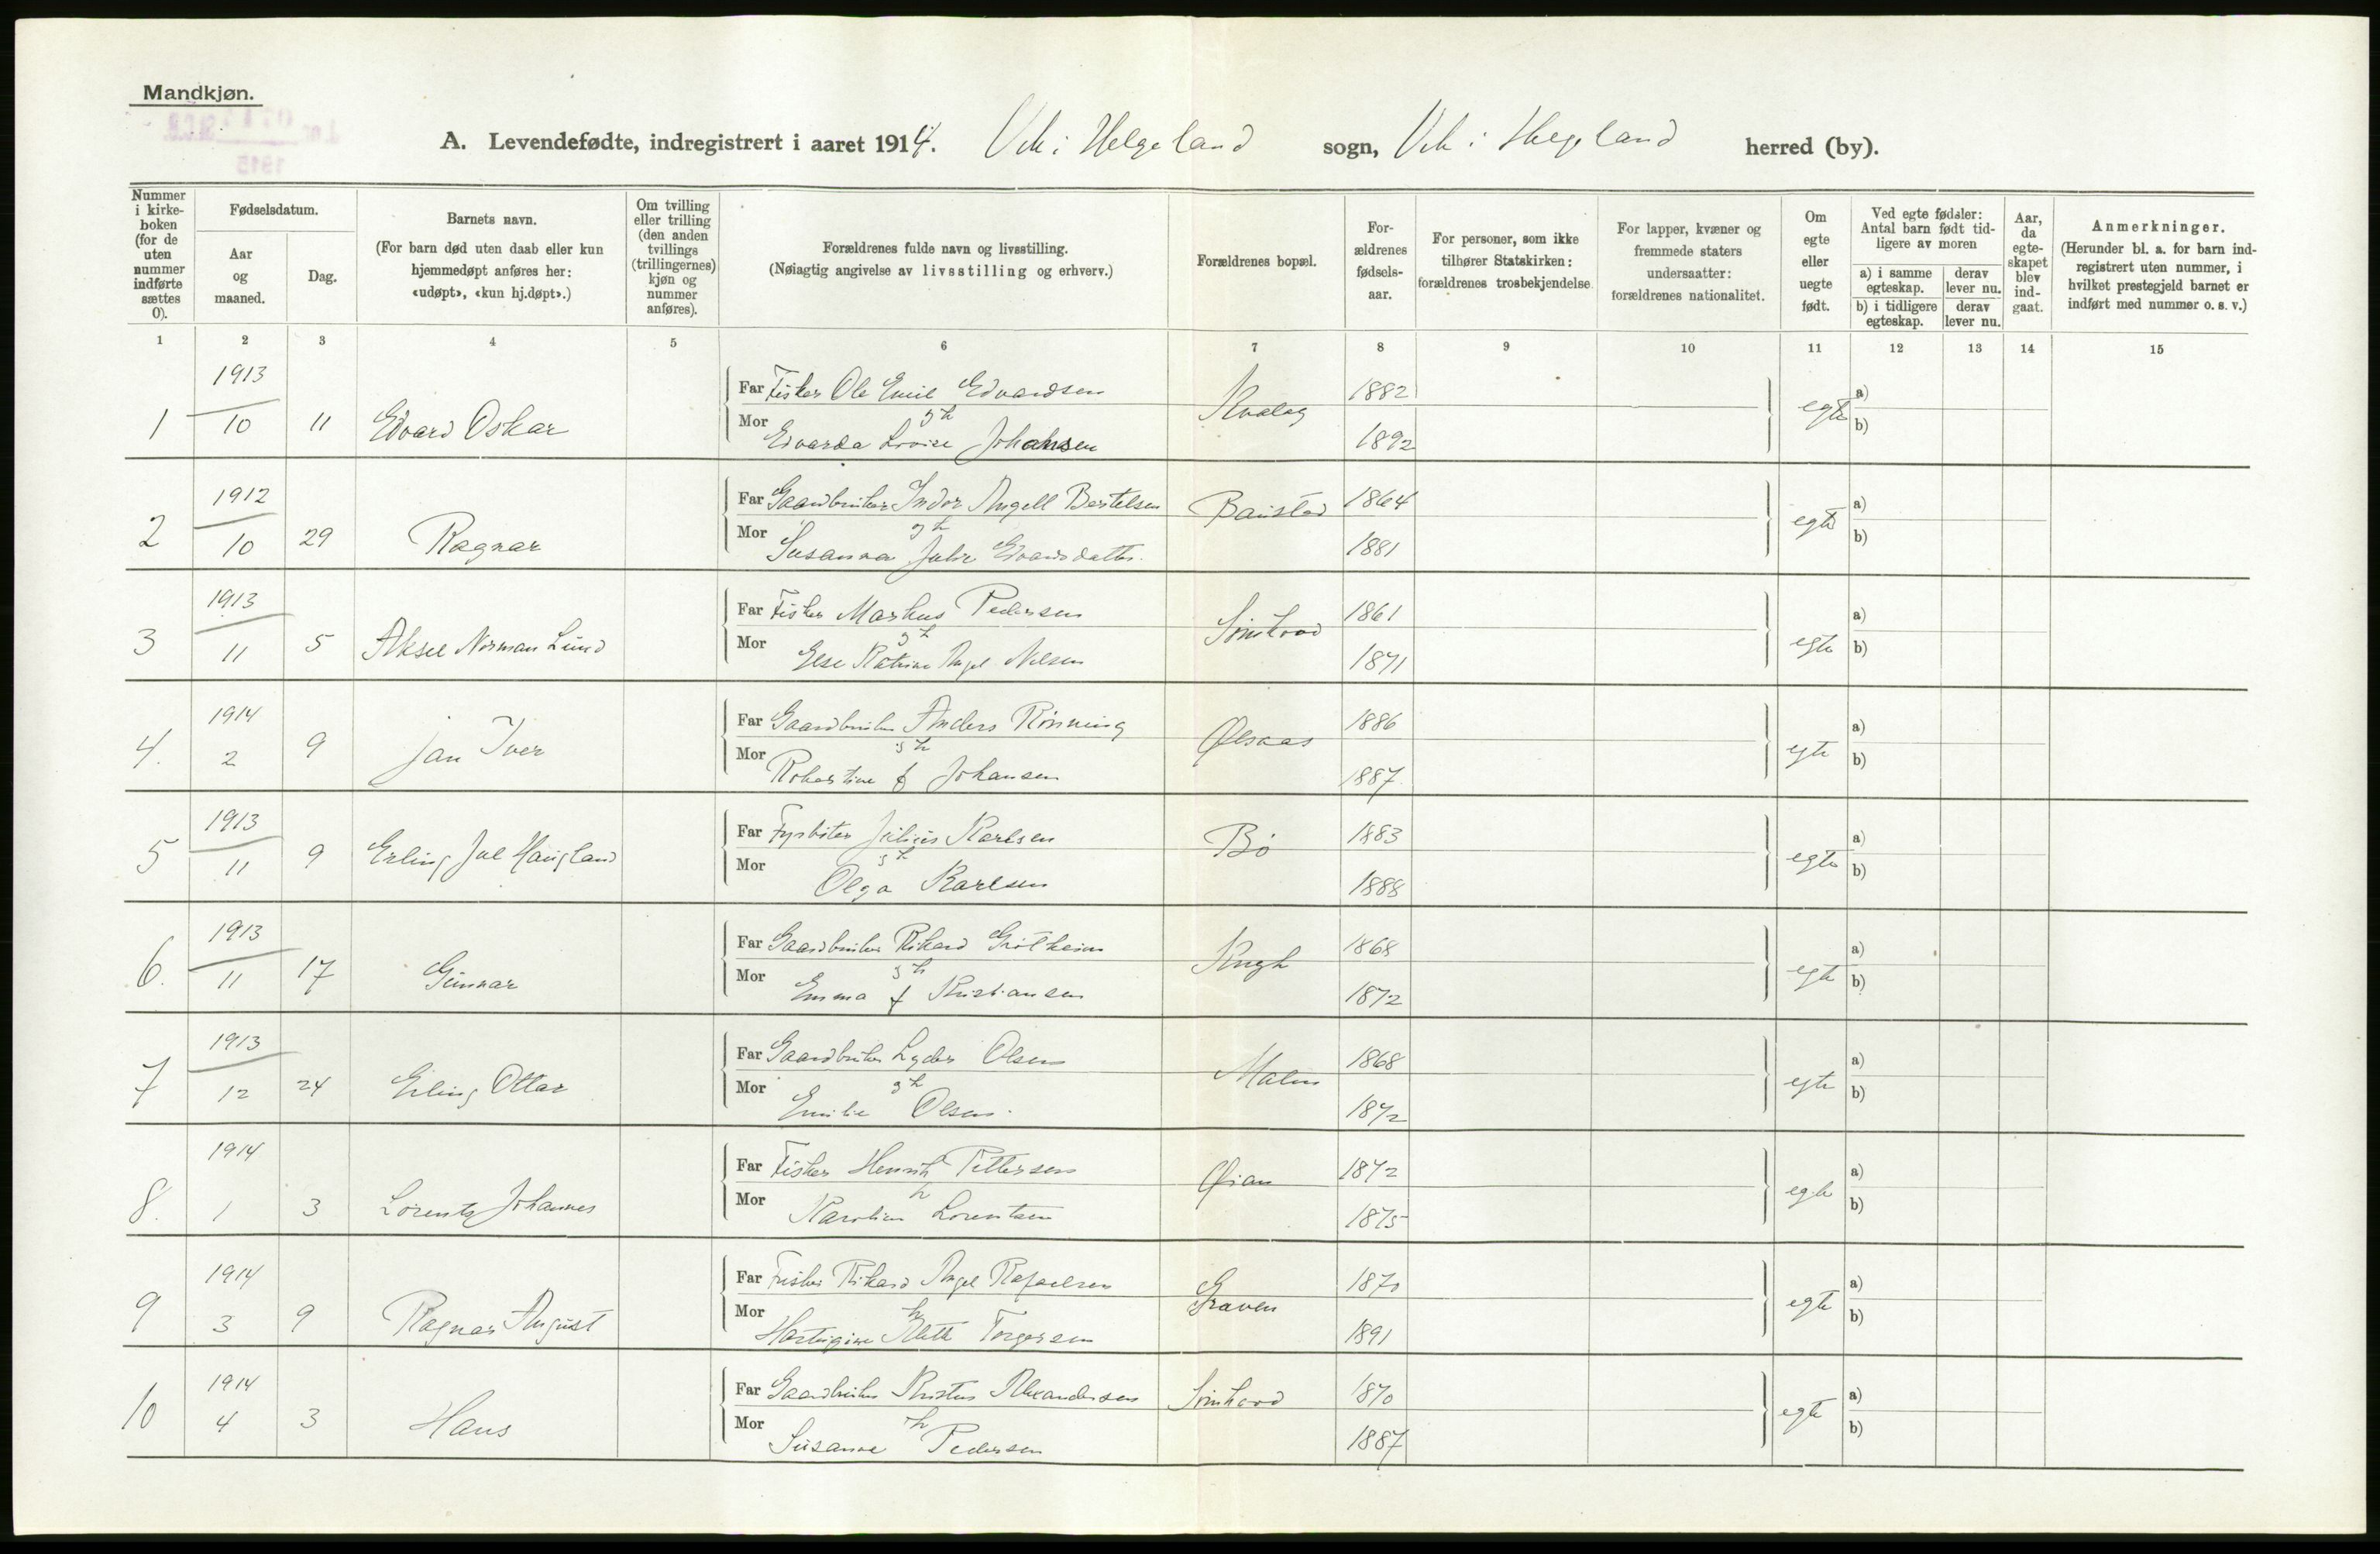 Mandkjøn.
A. Levendefødte, indregistrert i aaret 1914. Vik i Helgeland sogn, Vik i Helgeland herred (by).
Nummer i kirke-boken (for de uten nummer indførte sættes 0).
Fødselsdatum.
Aar og maaned.
Dag.
Barnets navn.
(For barn død uten daab eller kun hjemmedøpt anføres her: «udøpt», «kun hj.døpt».)
Om tvilling eller trilling (den anden tvillings (trillingernes) kjøn og nummer anføres).
Forældrenes fulde navn og livsstilling.
(Nøiagtig angivelse av livsstilling og erhverv.)
Forældrenes bopæl.
For-ældrenes fødsels-aar.
For personer, som ikke tilhører Statskirken: forældrenes trosbekjendelse.
For lapper, kvæner og fremmede staters undersaatter: forældrenes nationalitet.
Om egte eller uegte født.
Ved egte fødsler: Antal barn født tid-ligere av moren
a) i samme egteskap.
derav lever nu.
b) i tidligere egteskap.
derav lever nu.
Aar, da egte-skapet blev ind-gaat.
Anmerkninger.
(Herunder bl. a. for barn ind-registrert uten nummer, i hvilket prestegjeld barnet er indført med nummer o. s. v.)
1 2 3 4 5 6 7 8 9 10 11 12 13 14 15
1 1913 10 11 Edvard Oskar
Far Fisker Ole Emil Edvardsen 1882
Mor Edvarda Lovise Johansen 1892
egte a) b)
2 1912 10 29 Ragnar
Far Gaardbruker Indor Angell Bertelsen 1864
Mor Susanna Julie Edvardsdatter. 1881
egte a) b)
3 1913 11 5 Aksel Norman Lund
Far Fisker Markus Pedersen 1861
Mor Else Katrine Angel Nilsen 1871
egte a) b)
4. 1914 2 9 Jan Iver
Far Gaardbruker Anders Rønning 1886
Mor Johansen 1887
egte a) b)
5 1913 11 9 Erling Jul Haugland
Far Fyrbøter Julius Karlsen Bø 1883
Mor Olga Karlsen 1888
egte a) b)
6. 1913 11 17 Gunnar
Far Gaardbruker Rikard 1868
Mor Emma Kristiansen 1872
egte a) b)
7 1913 12 24 Erling Ottar
Far Gaardbruker Lyder Olsen 1868
Mor Emilie Olsen. 1872
egte a) b)
8. 1914 1 3 Lorents Johannes
Far Fisker Henrik Pettersen 1872
Mor Karoline Lorentsen 1875
egte a) b)
9 1914 3 9 Ragnar August
Far Fisker Rikard Angel Rafaelsen Graven 1870
Mor Torgersen 1891
egte a) b)
10 1914 4 3 Hans
Far Gaardbruker Alexandersen 1870
Mor Susanne Pedersen 1887
egte a) b)